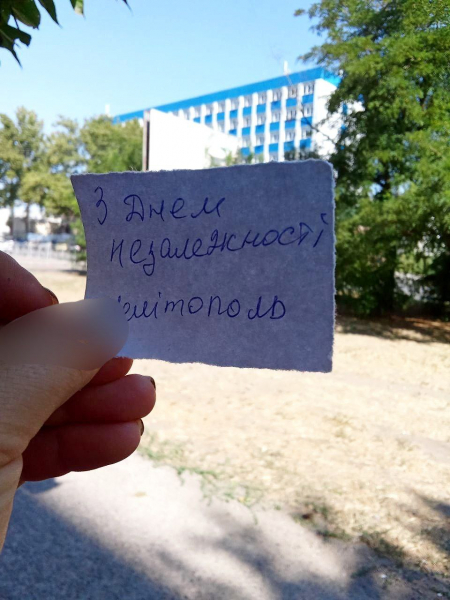 З Днем
незалежності
елітополь